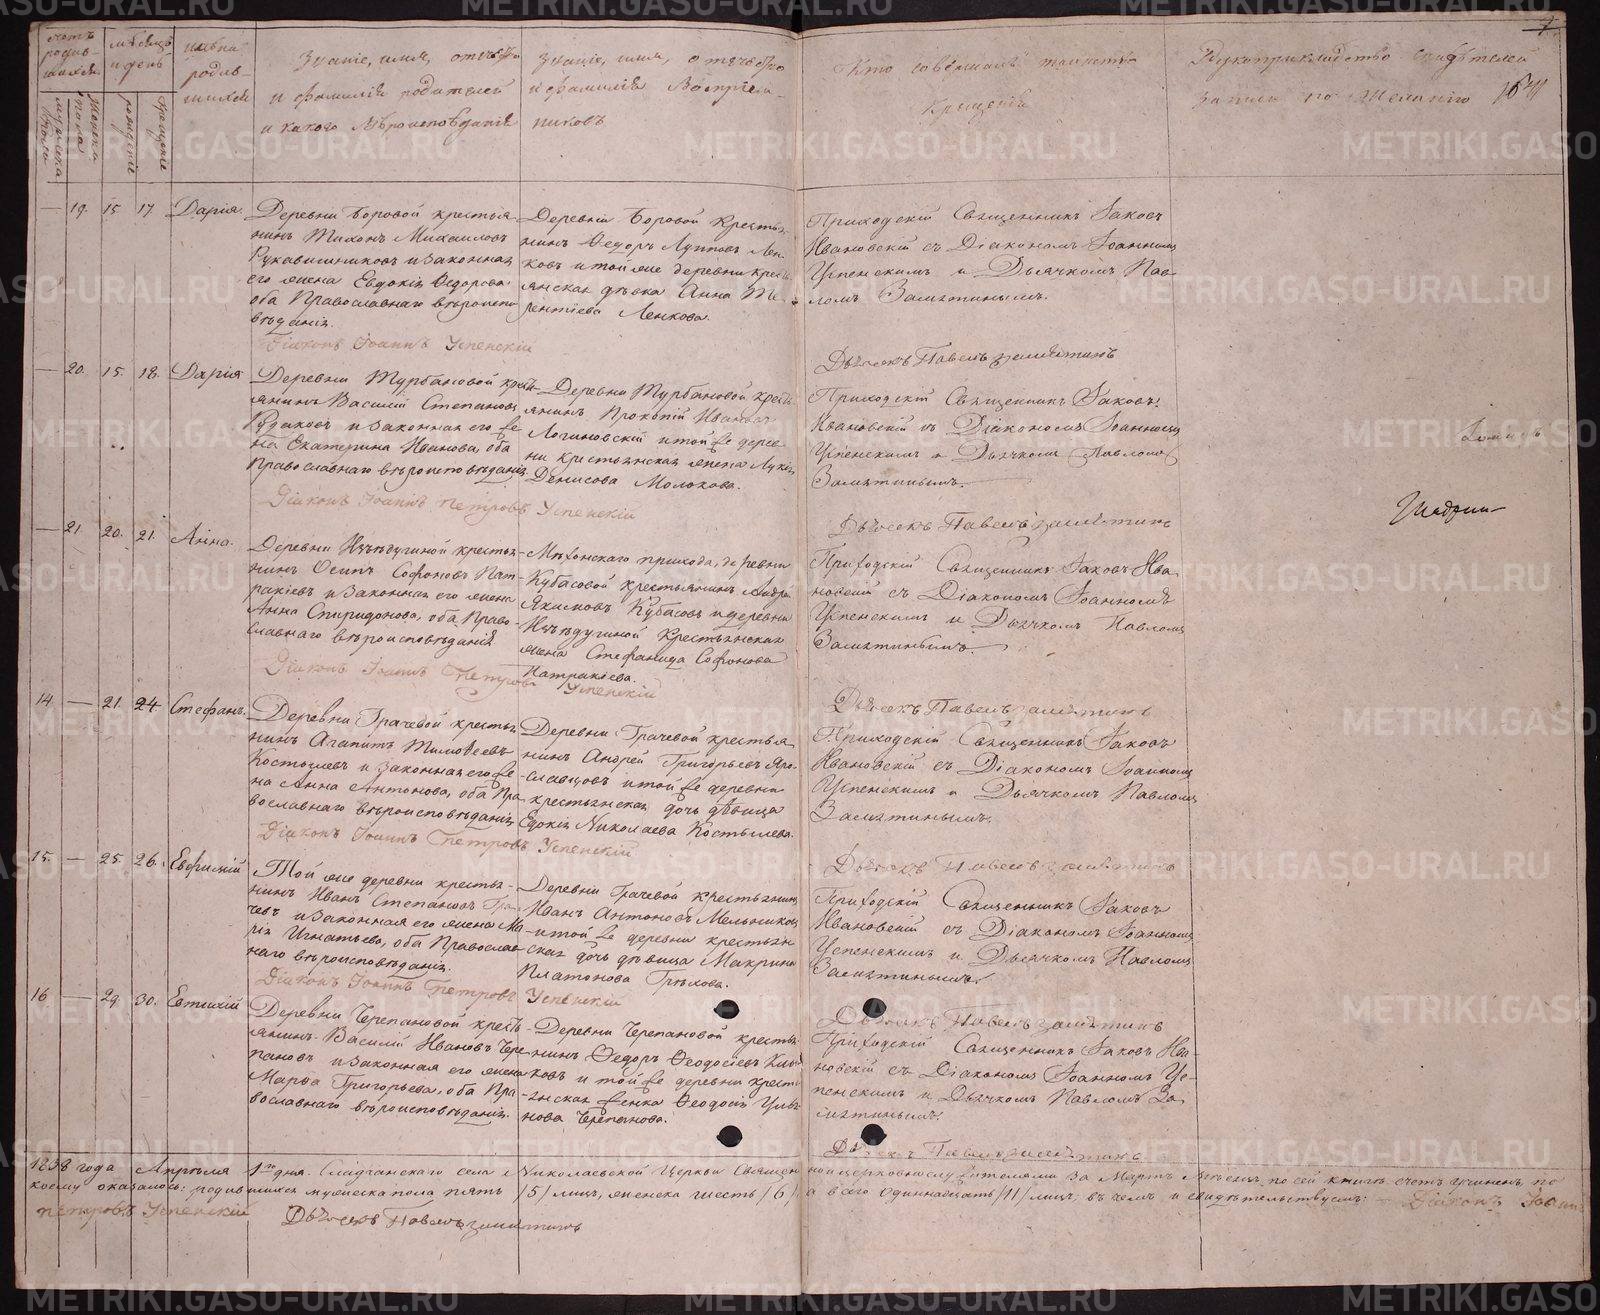 Счетъ родив-шихся
мужеска пола
женска пола
Мѣсяцъ и день
рожденіе
крещеніе
Имена родив-шихся
Званіе, имя, отечество
и фамилія родителей
и какого Вѣроисповѣданія
Званіе, имя, отечество
и фамилія Воспріем-
никовъ
Кто совершалъ таинство
Крещенія
Рукоприкладство свидѣтелей
записи по желанію
— 19. 15 17. Дарія.
Деревни Боровой крестья-
нинъ Тихонъ Михаиловъ
Рукавишниковъ и законная
его жена Евдокія Ѳедорова
оба Православнаго вѣроиспо-
вѣданія.
Деревни Боровой Крестья-
нинъ Ѳедоръ Лупповъ Лен-
ковъ и той же деревни крест-
янская дѣвка Анна Те-
рентіева Ленкова.
Приходскій Священникъ Іаковъ
Ивановскій съ Діакономъ Іоанномъ
Успенскимъ и Дьячкомъ Пав-
ломъ Замятинымъ.
Діаконъ Іоаннъ Успенскій
Дьячекъ Павелъ Замятинъ
— 20. 15. 18. Дарія
Деревни Турбановой крест-
янинъ Василій Степановъ
Рудаковъ и законная его же-
на Екатерина Иванова, оба
Православнаго вѣроисповѣданія
Деревни Турбановой крест-
янинъ Прокопій Ивановъ
Логиновскій и той же дерев-
ни крестьянская жена Лукія
Денисова Молокова.
Приходскій Священникъ Іаковъ
Ивановскій съ Діакономъ Іоанномъ
Успенскимъ и Дьячкомъ Павломъ
Замятинымъ.
Діаконъ Іоаннъ Петровъ Успенскій
Дьячекъ Павелъ Замятинъ
— 21. 20. 21. Анна.
Деревни крестья-
нинъ Осипъ Софоновъ Пат-
ракіевъ и законная его жена
Анна Спиридонова, оба Право-
славнаго вѣроисповѣданія
Мехонскаго прихода, деревни
Кубасовой крестьянинъ Андрей
Якимовъ Кубасовъ и деревни
Крестьянская
жена Стефанида Софонова
Патракіева.
Приходскій Священникъ Іаковъ Ива-
новскій съ Діакономъ Іоанномъ
Успенскимъ и Дьячкомъ Павломъ
Замятинымъ.
Діаконъ Іоаннъ Петровъ Успенскій
Дьячекъ Павелъ Замятинъ
14 — 21. 24 Стефанъ.
Деревни Грачевой крестья-
нинъ Агапитъ Тимоѳеевъ
Костылевъ и законная его же-
на Анна Антонова, оба Пра-
вославнаго вѣроисповѣданія
Деревни Грачевой крестья-
нинъ Андрей Григорьевъ Яро-
славцовъ и той же деревни
крестьянская дочь дѣвица
Едокія Николаева Костылева.
Приходскій Священникъ Іаковъ
Ивановскій съ Діакономъ Іоанномъ
Успенскимъ и Дьячкомъ Павломъ
Замятинымъ.
Діаконъ Іоаннъ Петровъ Успенскій
Дьячекъ Павелъ Замятинъ
15. — 25. 26. Евфимій
Той же деревни крестья-
нинъ Иванъ Степановъ Гра-
чевъ и законная его жена Ма-
рія Игнатьева, оба Православ-
наго вѣроисповѣданія.
Деревни Грачевой крестьянинъ
Иванъ Антоновъ Мельниковъ
и той же деревни крестьян-
ская дочь дѣвица Макрина
Платонова
Приходскій Священникъ Іаковъ
Ивановскій съ Діакономъ Іоанномъ
Успенскимъ и Дьячкомъ Павломъ
Замятинымъ.
Діаконъ Іоаннъ Петровъ Успенскій
Дьячекъ Павелъ Замятинъ
16 — 29. 30. Евтихій
Деревни Черепановой крест-
янинъ Василій Ивановъ Чере-
пановъ и законная его жена
Марѳа Григорьева, оба Пра-
вославнаго вѣроисповѣданія.
Деревни Черепановой крестья-
нинъ Ѳедоръ Ѳеодосіевъ
и той же деревни крест-
янская женка Ѳеодосія Улья-
нова Черепанова.
Приходскій Священникъ Іаковъ Ива-
новскій съ Діакономъ Іоанномъ Ус-
пенскимъ и Дьячкомъ Павломъ За-
мятинымъ.
Дьячекъ Павелъ Замятинъ
1838 года Апрѣля 1го дня. села Николаевской Церкви Священ- ноцерковнослужителями за Мартъ мѣсяцъ, по сей книгѣ счетъ учиненъ, по
коему оказалось: родившихся мужеска пола пять /5/ лицъ, женска шесть /6/ а всего одиннадцать /11/ лицъ; въ чемъ и свидѣтельствуемъ: Діаконъ Іоаннъ
Петровъ Успенскій Дьячекъ Павелъ Замятинъ
METRIKI.GASO-URAL.RU